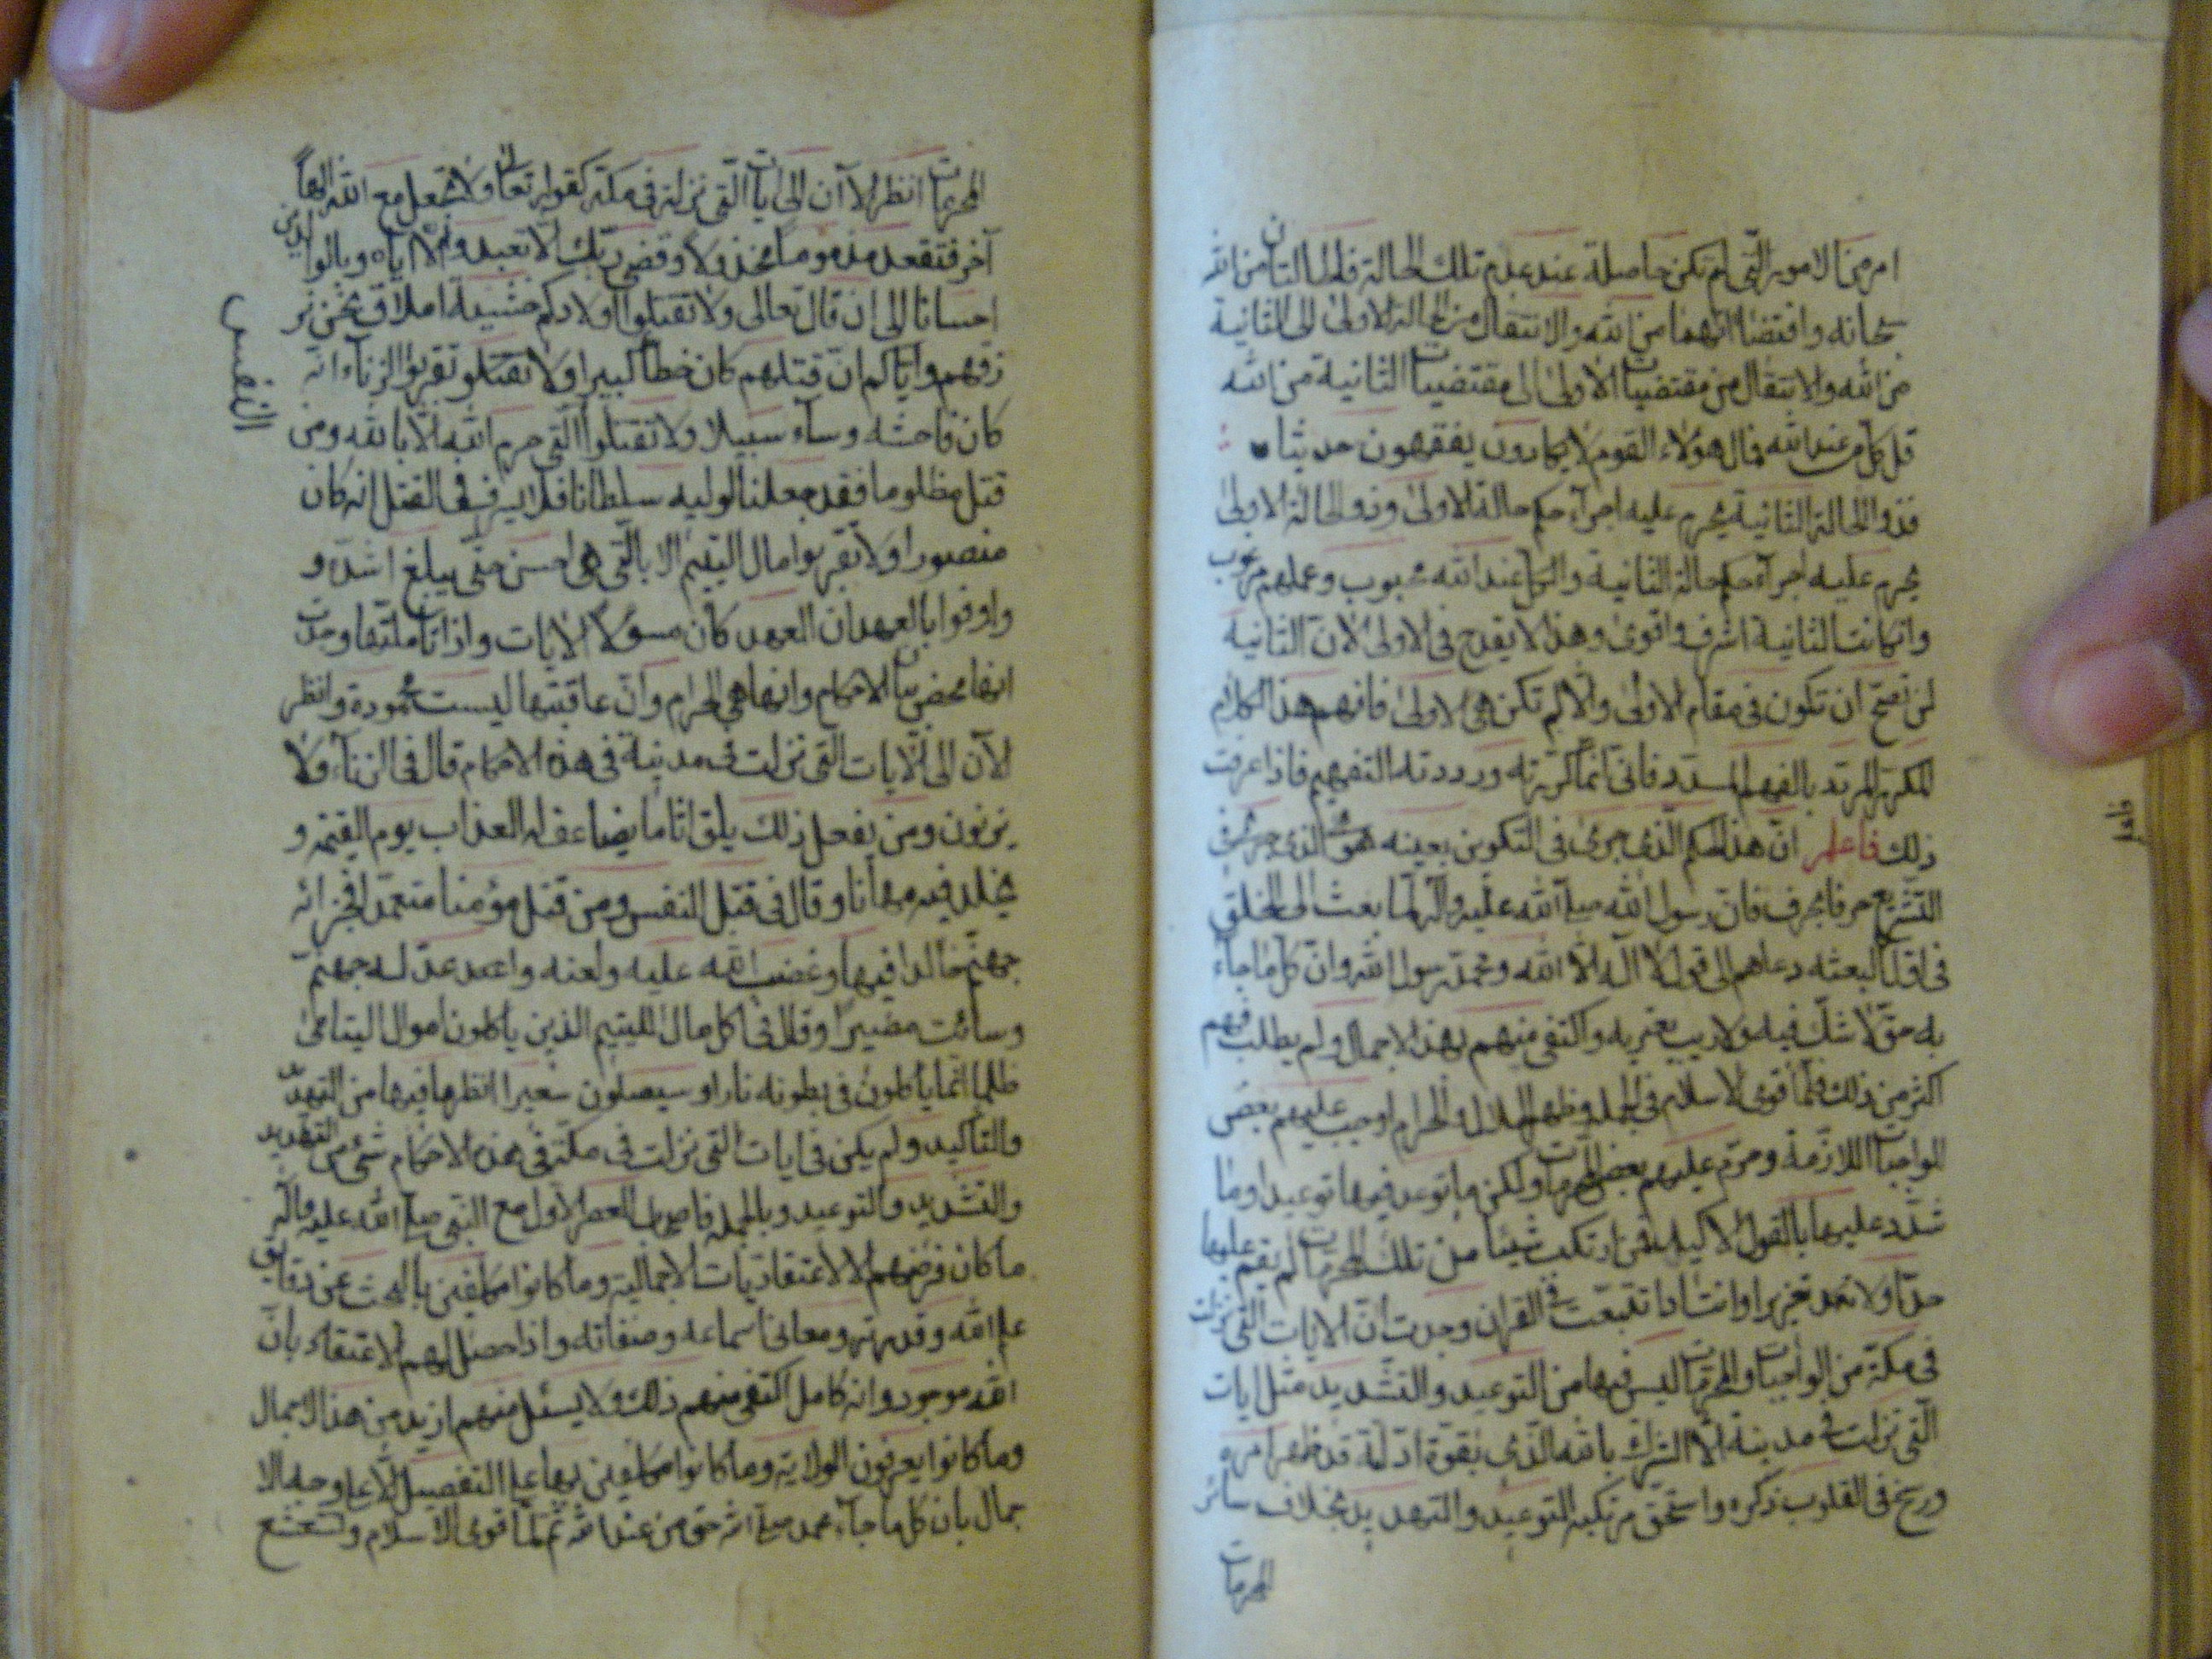 امر من الامور التى لم تكن حاصلة عند عدم تلك الحالة فلما التامن الله
سبحانه واقتضاا انهما من الله والانتقال من الحالة الاولى الى الثانية
من الله والانتقال من مقتضيات الاولى الى مقتضيات الثانية من الله
قل كل من عند الله فمال هؤلاء القوم لا يكادون يفقهون حديثا
فذو الحالة الثانية يحرم عليه اجرآء حكم حالة الاولى وذو الحالة الاولى
يحرم عليه اجرآء حكم حالة الثانية والكل عند الله محبوب وعملهم مرغوب
وانكانت الثانية اشرف واقوى وهذا لا يقدح فى الاولى لان الثانية
لن تصح ان تكون فى مقام الاولى والا لم تكن هى الاولى فافهم هذا الكلام
المكرر المردد بالفهم المسدد فانى انما كررته ورددته التفهيم فاذا عرفت
ذلك فاعلم ان هذا الحكم الذى جرى فى التكوين بعينه هو الذى جرى فى
التشريع حرفا بحرف فان رسول الله صلى الله عليه وآله لما بعث الى الخلق
فى اول البعثه دعاهم الى قول لا اله الا الله ومحمد رسول الله وان كل ما جاء
به حق لا شك فيه ولا ريب يعتريه واكتفى منهم بهذا الاجمال ولم يطلب فيهم
اكثر من ذلك فلما قوى الاسلام فى الجملة وظهر الحلال والحرام اوجب عليهم بعض
الواجبات اللازمة وحرم عليهم بعض المحرمات ولكن ما توعد فيها توعيدا وما
شدد عليها بالقول الاكيد فمن ارتكب شيئا من تلك المحرمات لم يقم عليها
حدا ولا تعزيرا وانت اذا تتبعت فى القران وجدت ان الايات التى نزلت
فى مكة من الواجبات والمحرمات ليس فيها من التوعيد والتشديد مثل ايات
التى نزلت فى مدينة الا الشرك بالله الذى بقوة ادلة قد ظهر امره
ورسخ فى القلوب ذكره واستحق مرتكبه التوعيد والتهديد بخلاف سائر
المحرمات
المحرمات انظر الاآن الى ايات التى نزلة فى مكة كقوله تعالى ولا تجعل مع الله الها
آخر فتقعد مذموما مخذولا وقضى ربك الا تعبدوا الا اياه وبالوالدين
احسانا الى ان قال تعالى ولا تقتلوا اولادكم خشية املاق نحن نر
زقهم واياكم ان قتلهم كان خطأ كبيرا ولا تقتلو تقربوا الزناء انه
كان فاحشه وساء سبيلا ولا تقتلوا التى حرم الله الا بالله ومن
النفس
قتل مظلوما فقد جعلنا لوليه سلطانا فلا يسرف فى القتل انه كان
منصورا ولا تقربوا مال اليتيم الا بالتى هى احسن حتى يبلغ اشده و
واوفوا بالعهد ان العهد كان مسؤلا الايات واذا تاملتها وجدت
انها محض بيان الاحكام وانها هى الحرام وان عاقبتها ليست محمودة وانظر
الآن الى الايات التى نزلت فى مدينة فى هذه الاحكام قال فى الزناء ولا
يزنون ومن يفعل ذلك يلق اثاما يضاعف له العذاب يوم القيمة و
يخلد فيه مهانا وقال فى قتل النفس ومن قتل مؤمنا متعمدا فجزائه
جهنم خالدا فيها وغضب الله عليه ولعنه واعد له جهنم
وسائت مصيرا وقال فى اكل مال اليتيم الذين ياكلون اموال اليتامى
ظلما انما ياكلون فى بطونه نارا وسيصلون سعيرا انظر ما فيها من التهديد
والتأكيد ولم يكن فى ايات التى نزلت فى مكة فى هذه الاحكام شئ من التهديد
والتشديد والتوعيد وبالجملة فاصحاب العصر الاول مع النبى صلى الله عليه وآله
ما كان فرضهم الا الاعتقاديات الاجمالية وما كانوا مكلفين بالبحث عن دقايق
علم الله وقدرته ومعانى اسمائه وصفاته واذا حصل لهم الاعتقاد بان
الله موجود وانه كامل اكتفى منهم ذلك ولا يسئل منهم ازيد من هذا الاجمال
وما كانوا يعرفون الولاية وما كانوا مكلفين بها على التفصيل الا على وجه الا
جمال بان كل ما جاء محمد صلى الله حق من عند الله ثم لما قوى الاسلام وتشعشع